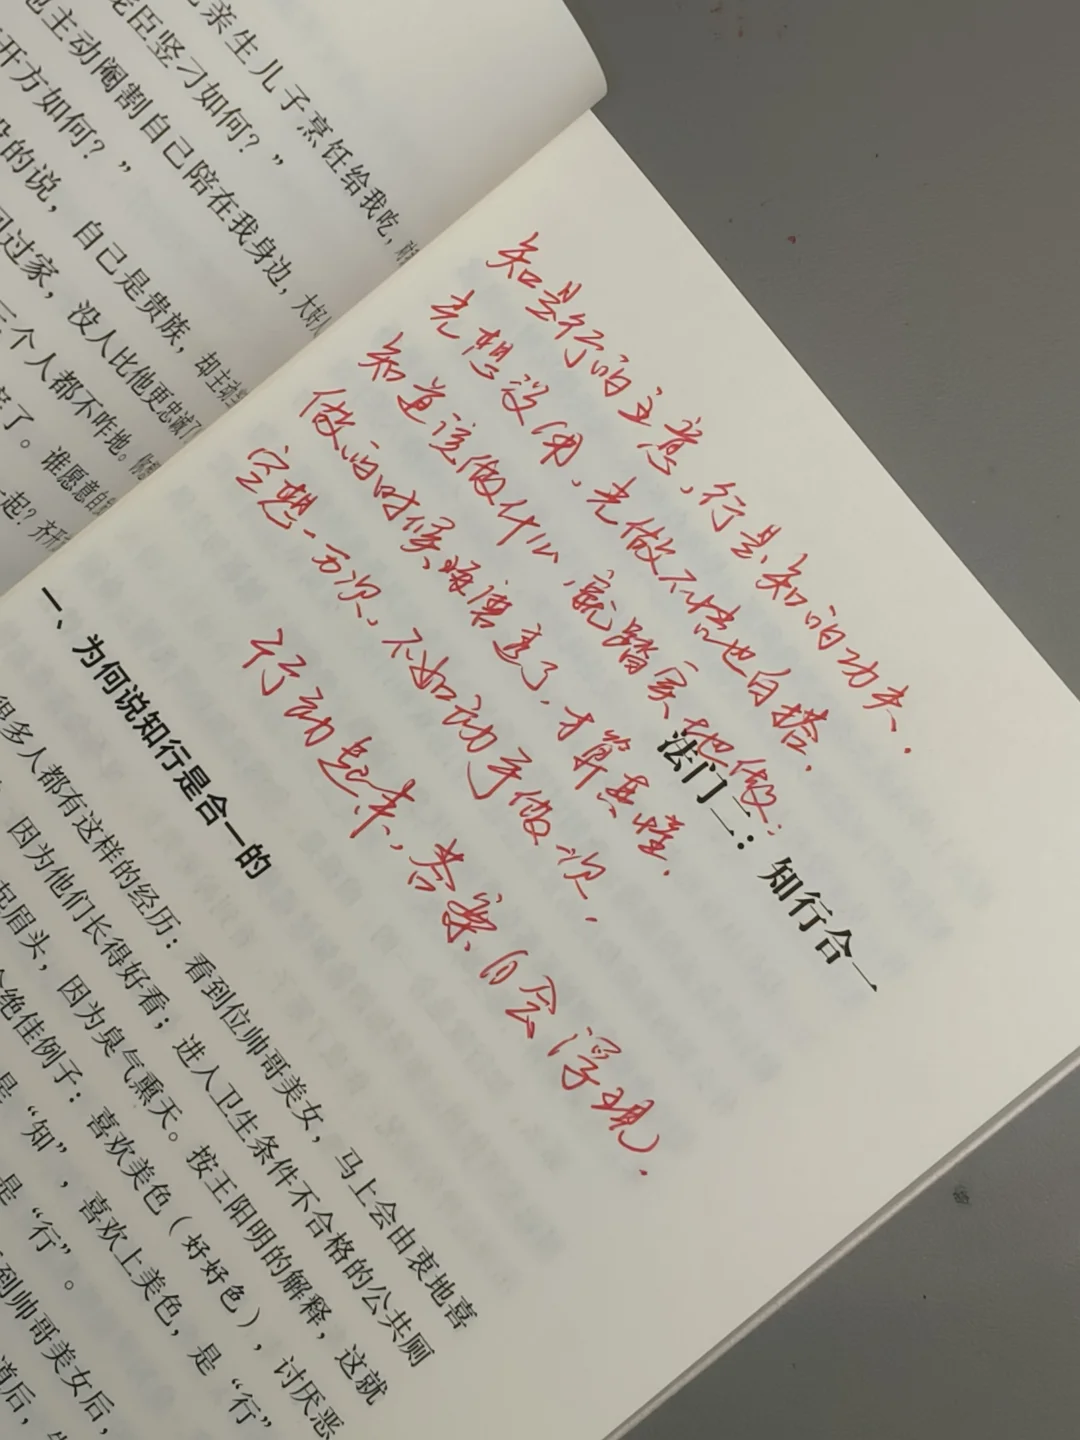 亲生儿子烹饪给我吃，
宠臣竖刁如何？”
他主动阉割自己陪在我身边，
开方如何？”
的说，自己是贵族，却主动
过家，没人比他更忠诚了
三个人都不咋地。你想
了。谁愿意自
一起？齐
知是行的主意，行是知的功夫.
光想没用，光做不悟也白搭.
知道该做什么，就踏实地做；
做的时候，琢磨透了，才算真懂.
空想一万次，不如动手做一次.
行动起来，答案自会浮现.
法门二：知行合一
一、为何说知行是合一的
很多人都有这样的经历：看到位帅哥美女，马上会由衷地喜
因为他们长得好看；进入卫生条件不合格的公共厕
起眉头，因为臭气熏天。按王阳明的解释，这就
绝佳例子：喜欢美色（好好色），讨厌恶
是“知”，喜欢上美色，是“行”
是“行”。
到帅哥美女后，
道后，